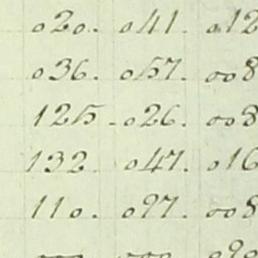 020. 041. 012
036. 057. 008
125. 026. 008
132. 047. 016
110. 097. 008